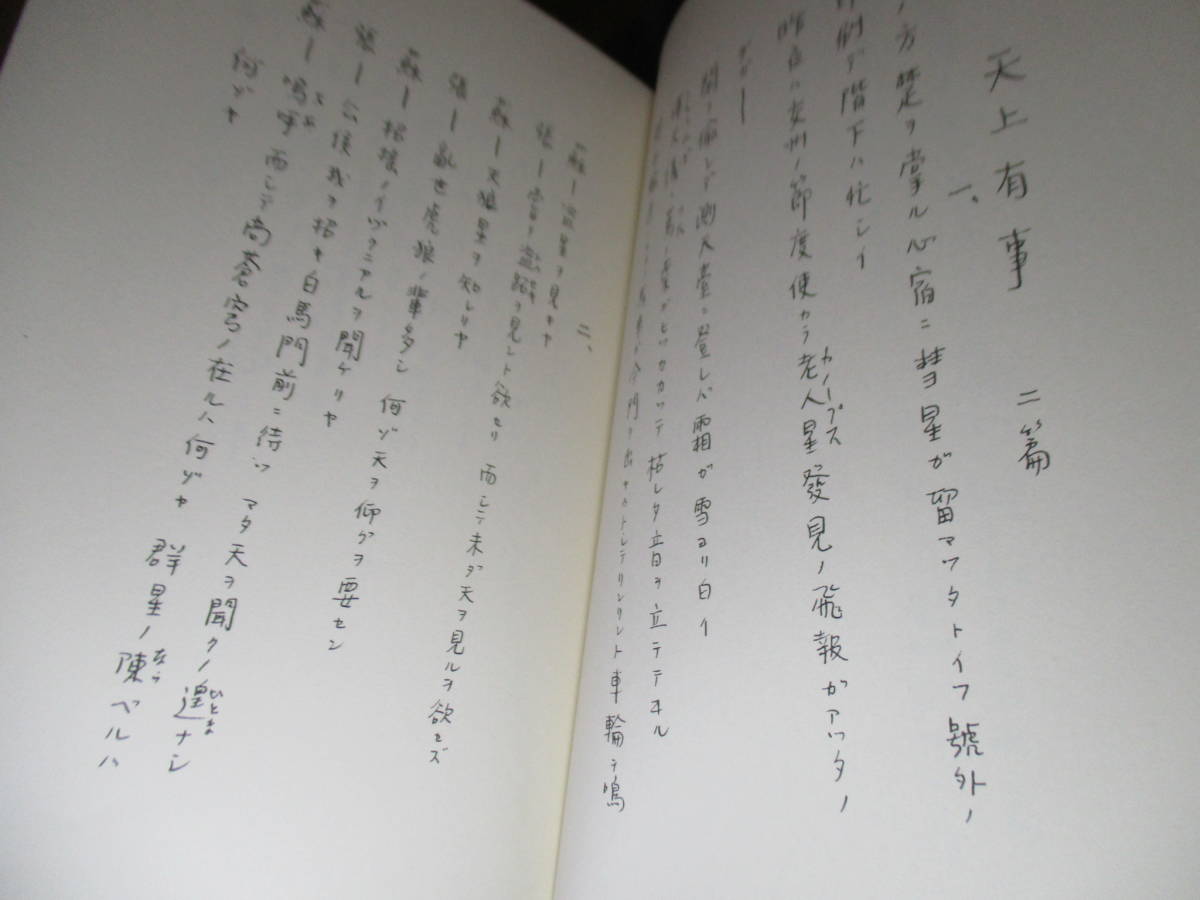 天上有事 二篇
一、
ノ方楚ヲ掌ル心宿ニ彗星ガ留マツタトイフ號外ノ
例デ階下ハ忙シイ
昨夜ハ交州ノ節度使カラ老人星發見ノ飛報ガアツタノ
カノープス
デガ――
測天臺ニ登レバ霜ガ雪ヨリ白イ
枯レタ音ヲ立テテヰル
門ヲ出 車輪ヲ鳴
二、
蘇――流星ヲ見キヤ
張――嘗ニ盜蹠ヲ見ント欲セリ 而シテ未ダ天ヲ見ルヲ欲セズ
蘇――天狼星ヲ知レリヤ
張――亂世虎狼ノ輩多シ 何ゾ天ヲ仰グヲ要セン
蘇――招搖ノイヅクニアルヲ聞ケリヤ
張――公侯我ヲ招キ白馬門前ニ待ツ マタ天ヲ聞クノ遑ナシ
ひとま
蘇――嗚呼 而シテ尚蒼穹ノ在ルハ何ゾヤ 群星ノ陳ベルハ
なら
何ゾヤ